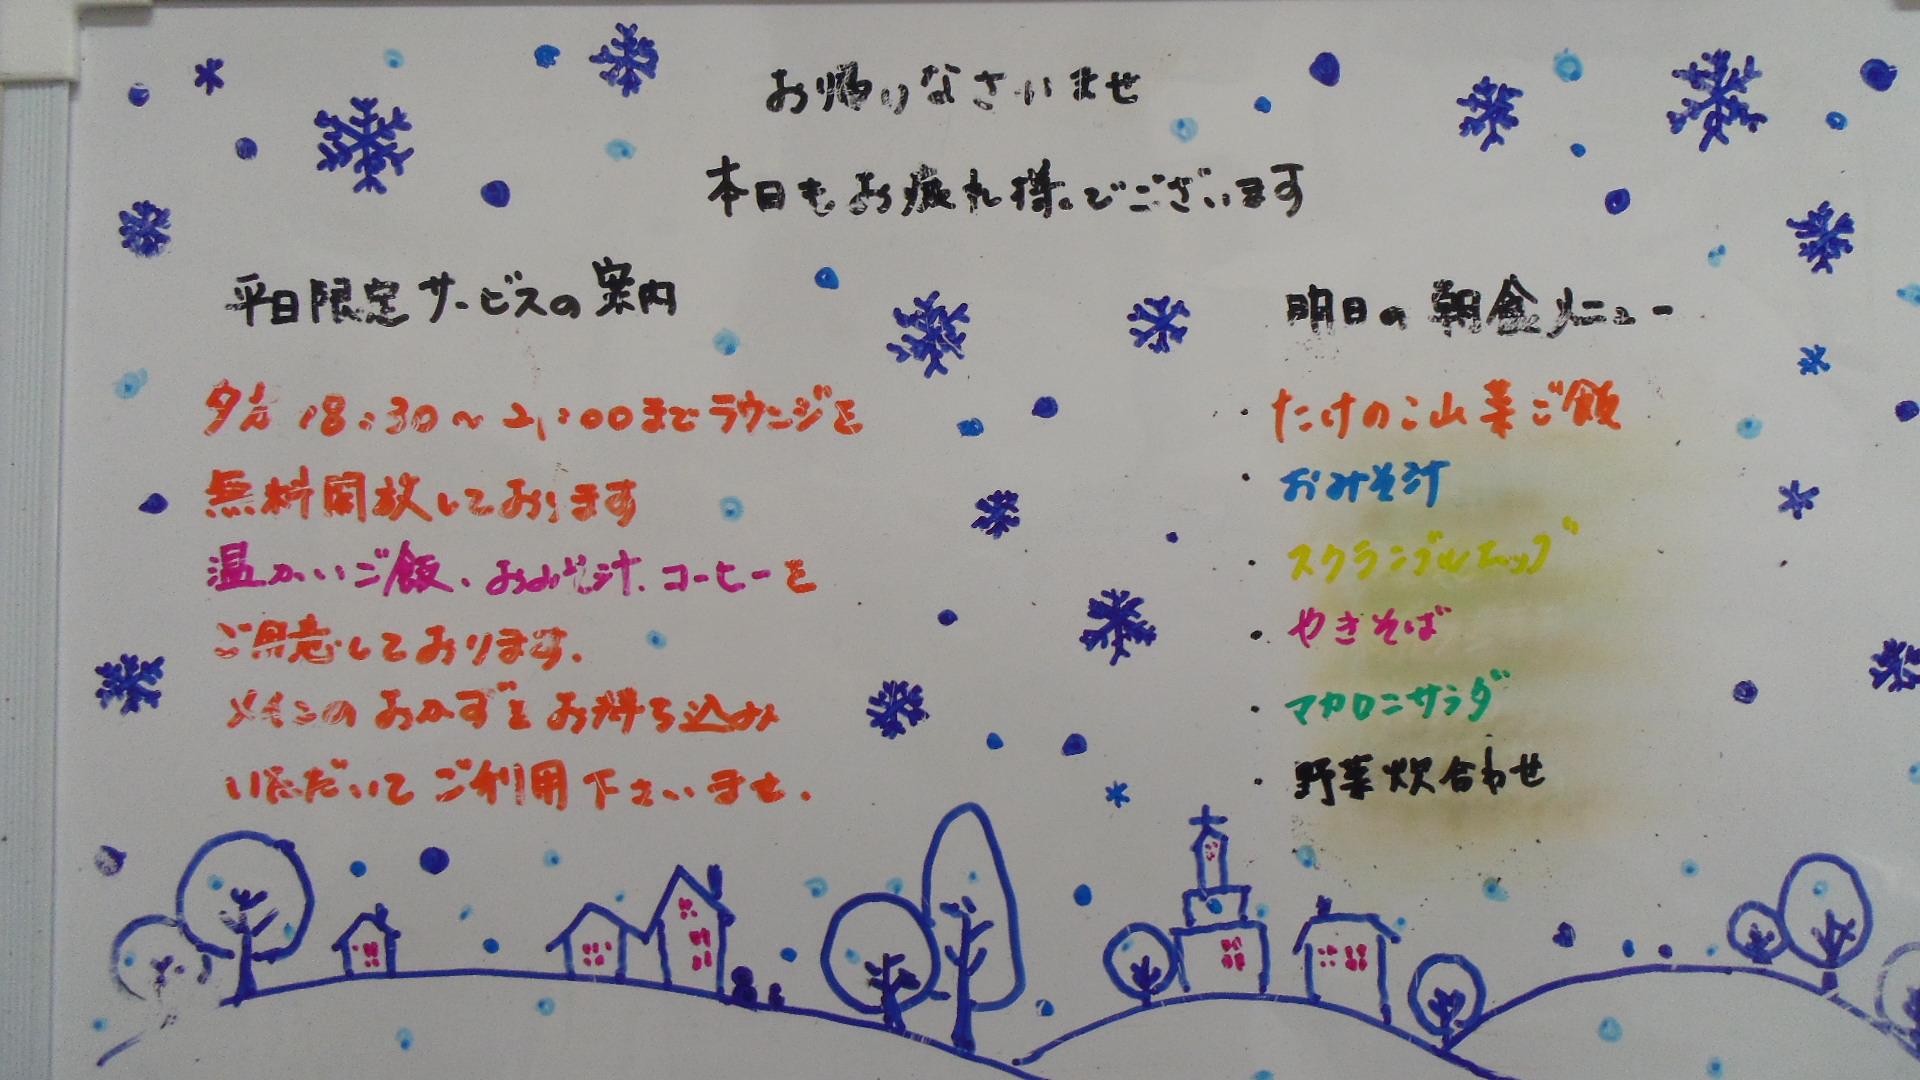 お帰りなさいませ
本日もお疲れ様でございます
平日限定サービスの案内
夕方18:30～21:00までラウンジを
無料開放しております
温かいご飯、おみそ汁、コーヒーを
ご用意しております。
メインのおかずをお持ち込み
いただいてご利用下さいませ。
明日の朝食メニュー
・たけのこ山菜ご飯
・おみそ汁
・スクランブルエッグ
・やきそば
・マカロニサラダ
・野菜炊合わせ